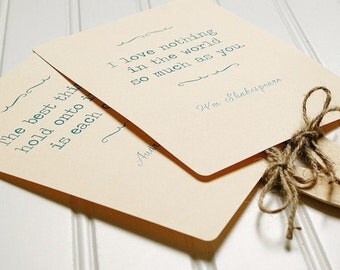 I love nothing
in the world
so much as you.
Wm Shakespeare
The best thi
hold onto i
is each
Au